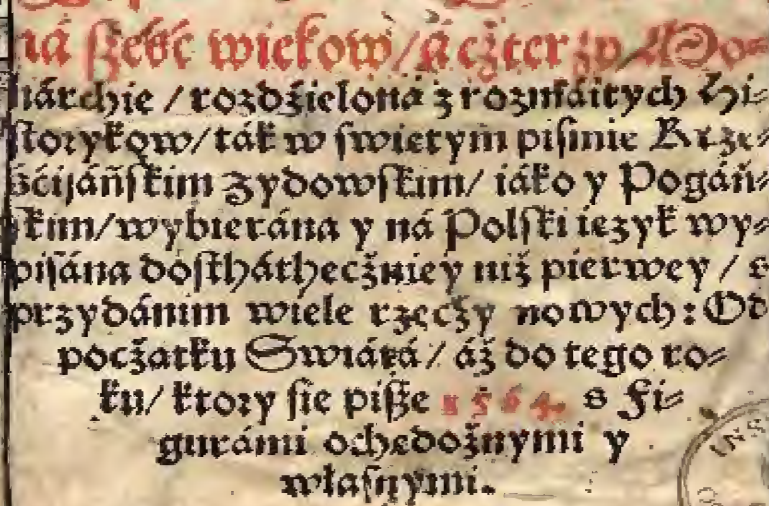 ná sześć wiekow / á cżterzy Mo⸗
nárchie / rozdźielona z rozmáitych Hi⸗
storykow / ták w swietym pismie Krze⸗
śćijáńskim zydowskim / iáko y Pogáń⸗
skim / wybierána y ná Polski iezyk wy⸗
pisána dostháthecżniey niż pierwey / s
przydánim wiele rzecży nowych: Od
pocżatku Swiátá / áż do tego ro⸗
ku / ktory sie pisze 1564. s Fi⸗
gurámi ochedożnymi y
własnymi.
INS